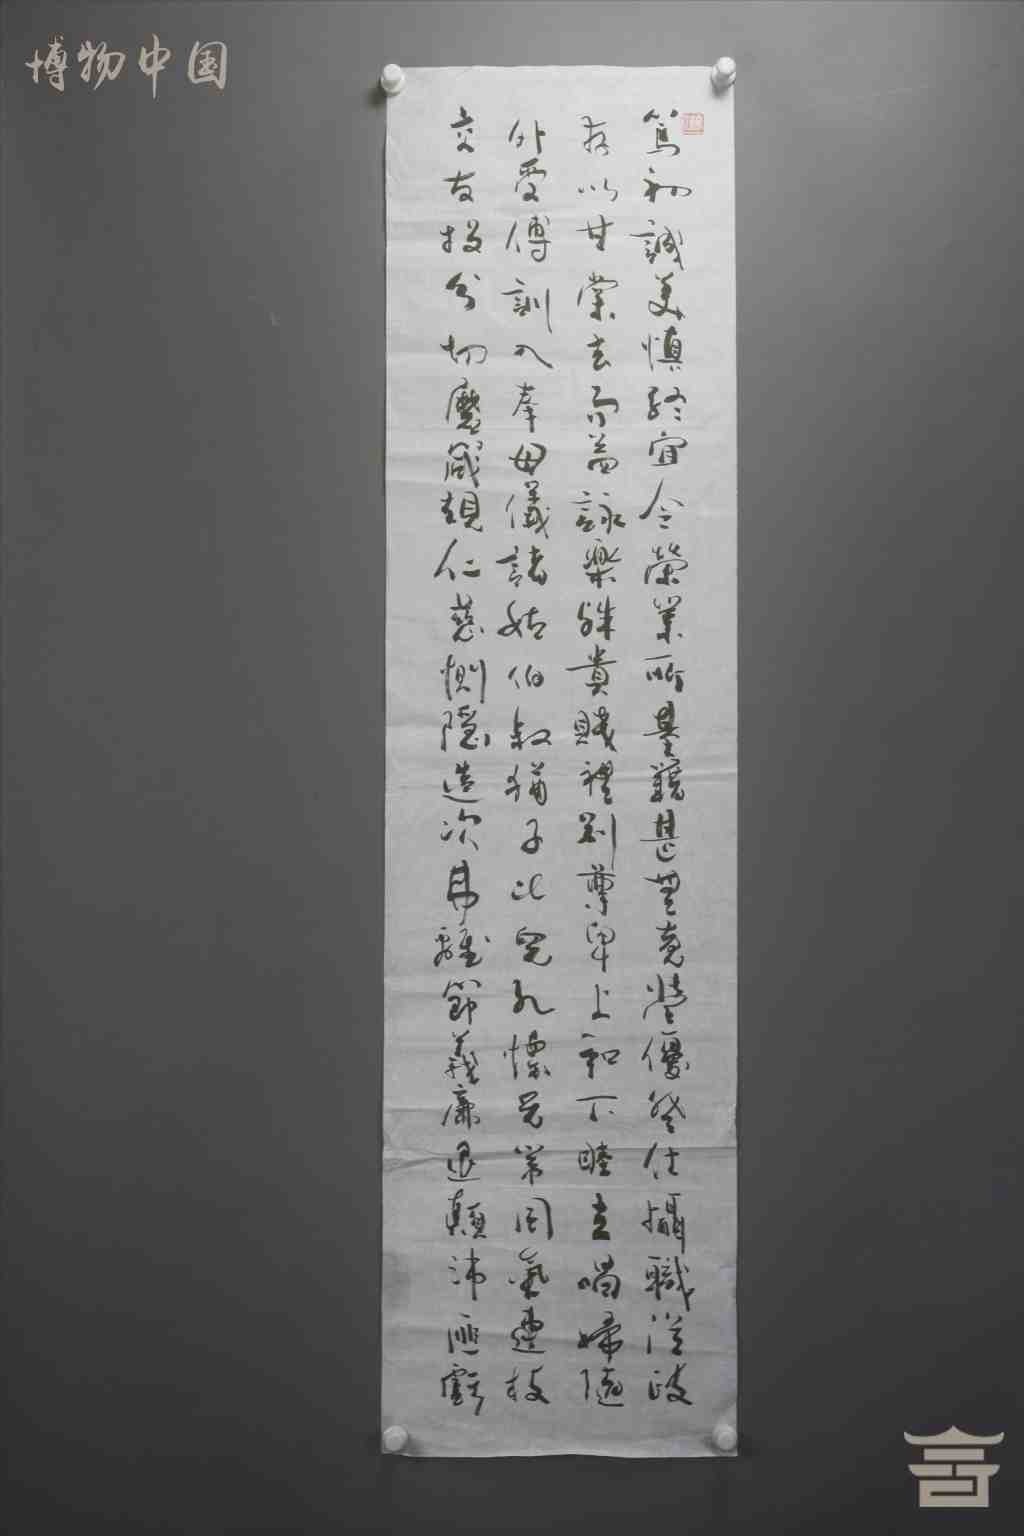 博物中国
篤初誠美慎終宜令榮業所基籍甚無竟學優登仕攝職從政
存以甘棠去而益詠樂殊貴賤禮別尊卑上和下睦夫唱婦隨
外受傅訓入奉母儀諸姑伯叔猶子比兒孔懷兄弟同氣連枝
交友投分切磨箴規仁慈惻隱造次弗離節義廉退顛沛匪虧